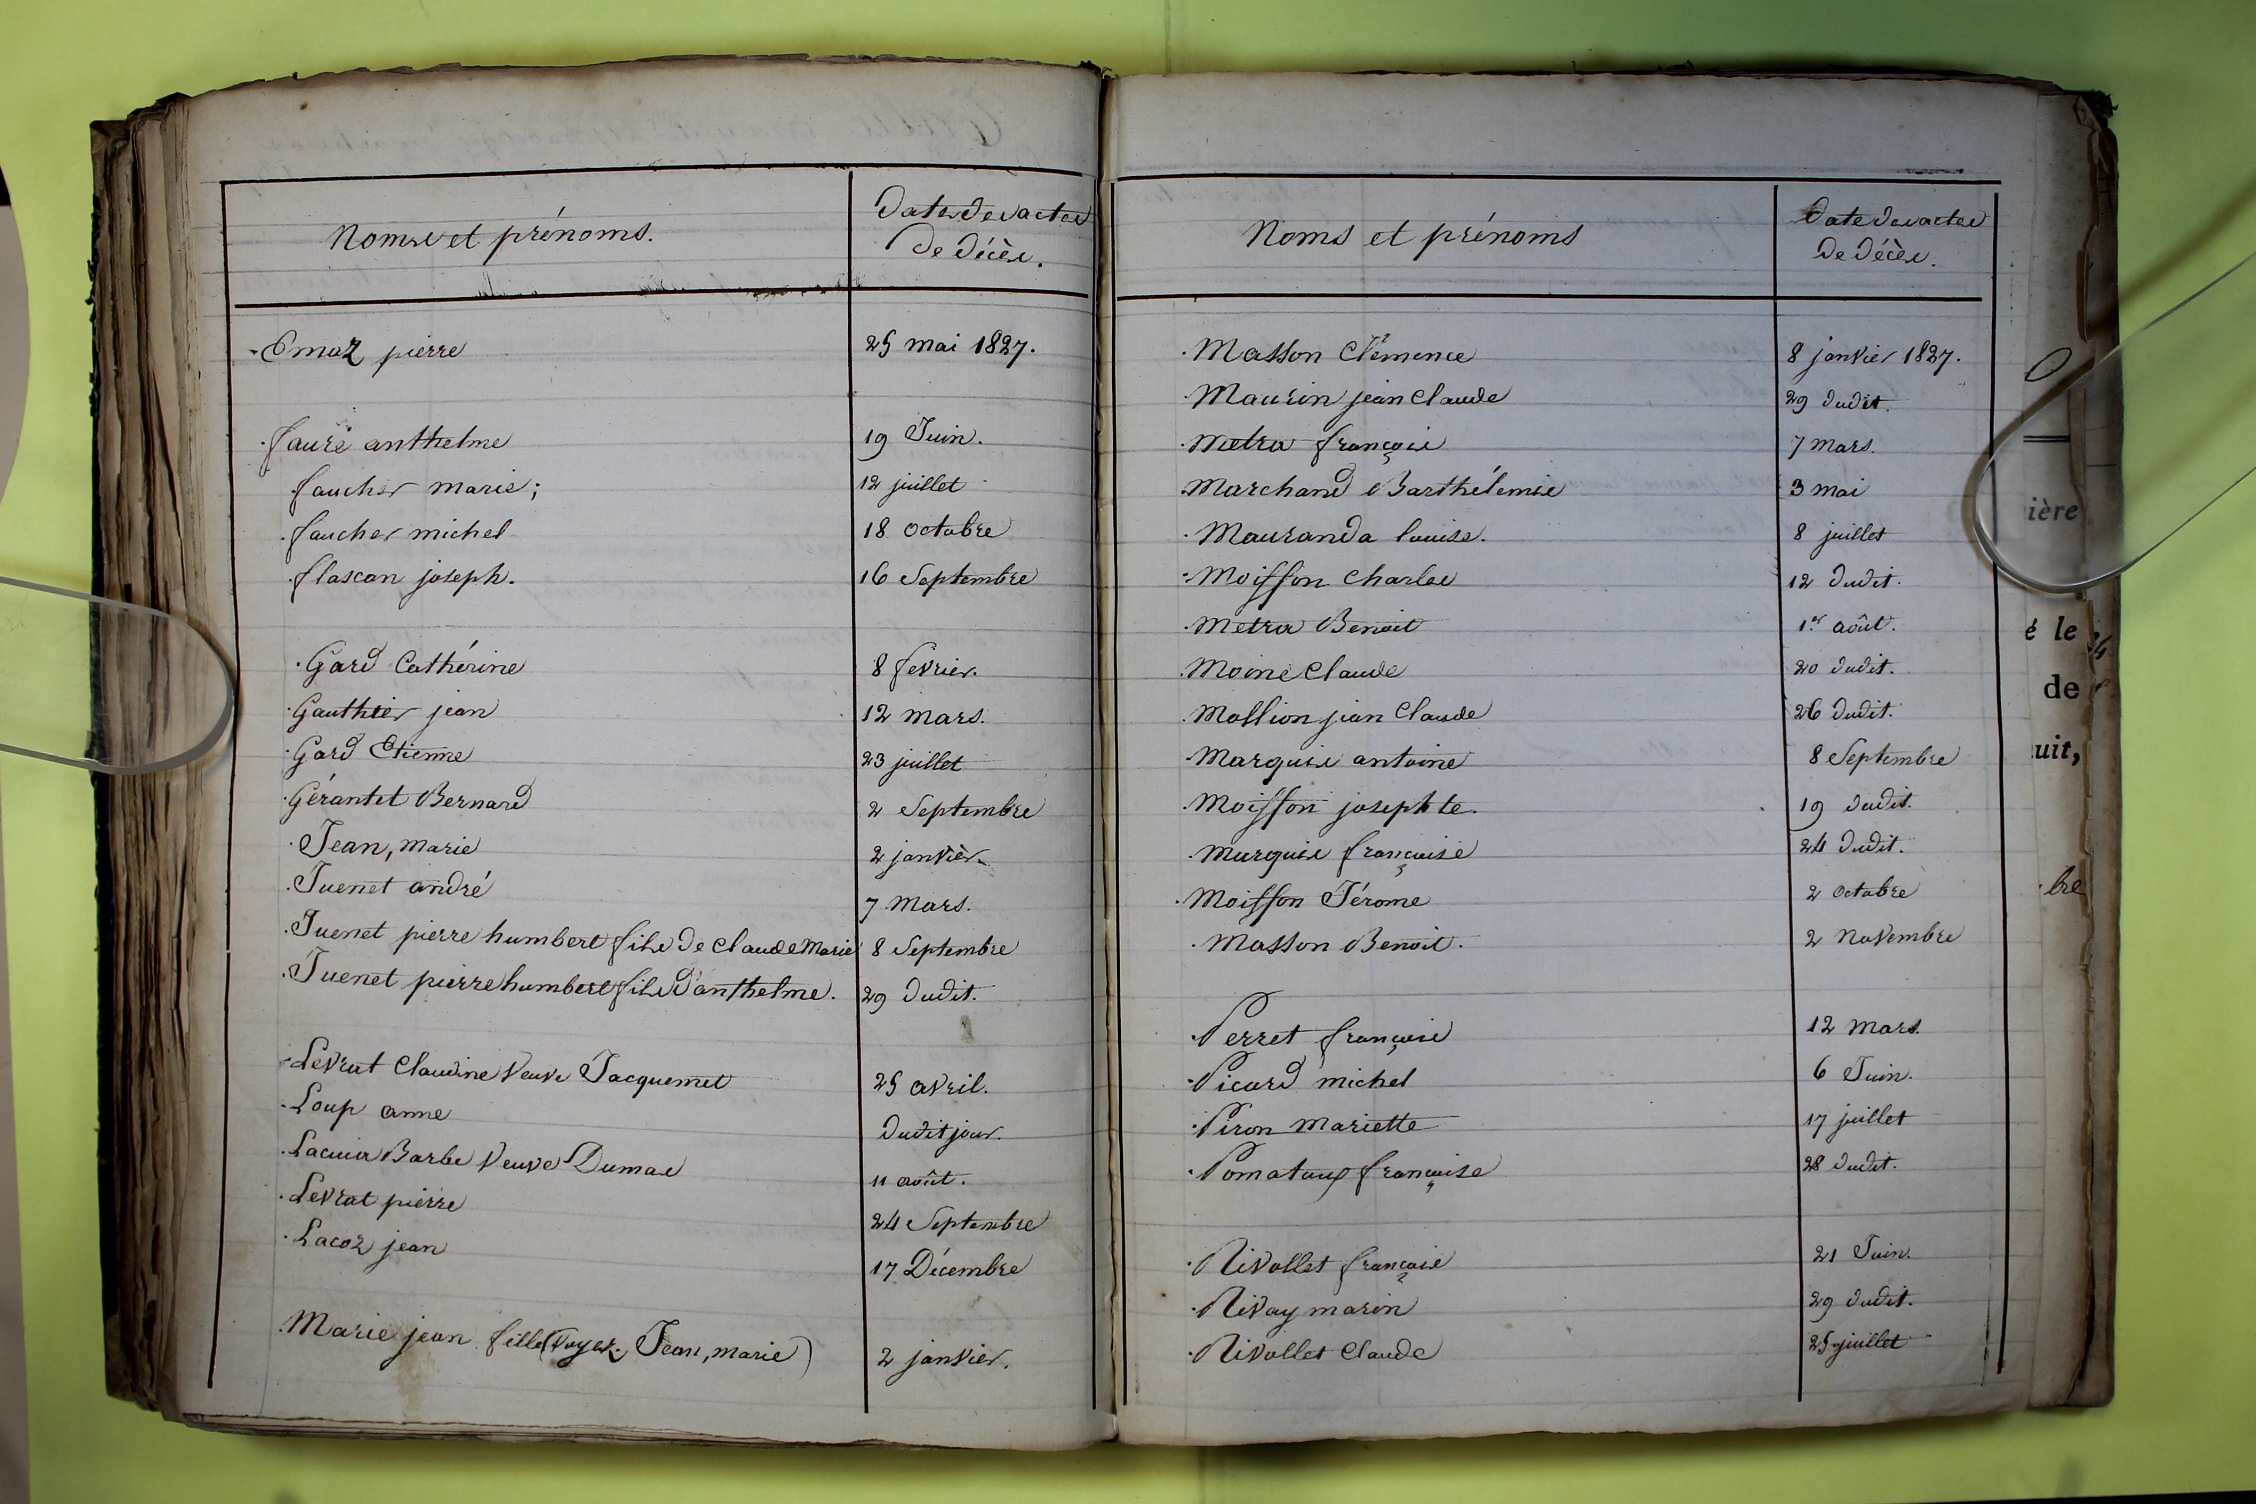 Noms et prénoms.
Date des actes
De Décès.
Emoz pierre 25 mai 1827.
faure anthelme 19 Juin.
faucher marie; 12 juillet
faucher michel 18 octobre
flascan joseph. 16 Septembre
Gard Cathérine 8 fevrier.
Gauthier jean 12 mars.
Gard Etienne 23 juillet
Gérantet Bernard 2 Septembre
Jean, marie 2 janvier.
Juenet andré 7 Mars.
Juenet pierre humbert fils de Claude Marie 8 Septembre
Juenet pierre humbert fils D'anthelme. 29 dudit.
Levrat Claudine Veuve Jacquemet 25 avril.
Loup anne dudit jour.
Lacuia Barbe Veuve Dumas 11 août.
Levrat pierre 24 Septembre
Lacoz jean 17 Décembre
Marie jean fille (Voyez Jean, marie) 2 janvier.
Noms et prénoms
Date des actes
De Décès.
Masson Clémence 8 janvier 1827.
Maurin jean Claude 29 dudit.
Metra françois 7 mars.
Marchand Barthélemie 3 mai
Mauranda louise. 8 juillet
Moisson Charles 12 dudit.
Metra Benoit 1er août.
Moine Claude 20 dudit.
Mollion jean Claude 26 dudit.
Marquis antoine 8 Septembre
Moisson josephte. 19 dudit.
Marquis françoise 24 dudit.
Moisson Jérome 2 octobre
Masson Benoit. 2 Novembre
Perret françois 12 mars.
Picard michel 6 Juin.
Piron Mariette 17 juillet
Pomataux françoise 28 dudit.
Rivollet françois 21 Juin.
Rivay marin 29 dudit.
Rivollet Claude 25 juillet
ière
é le
de
uit,
bre